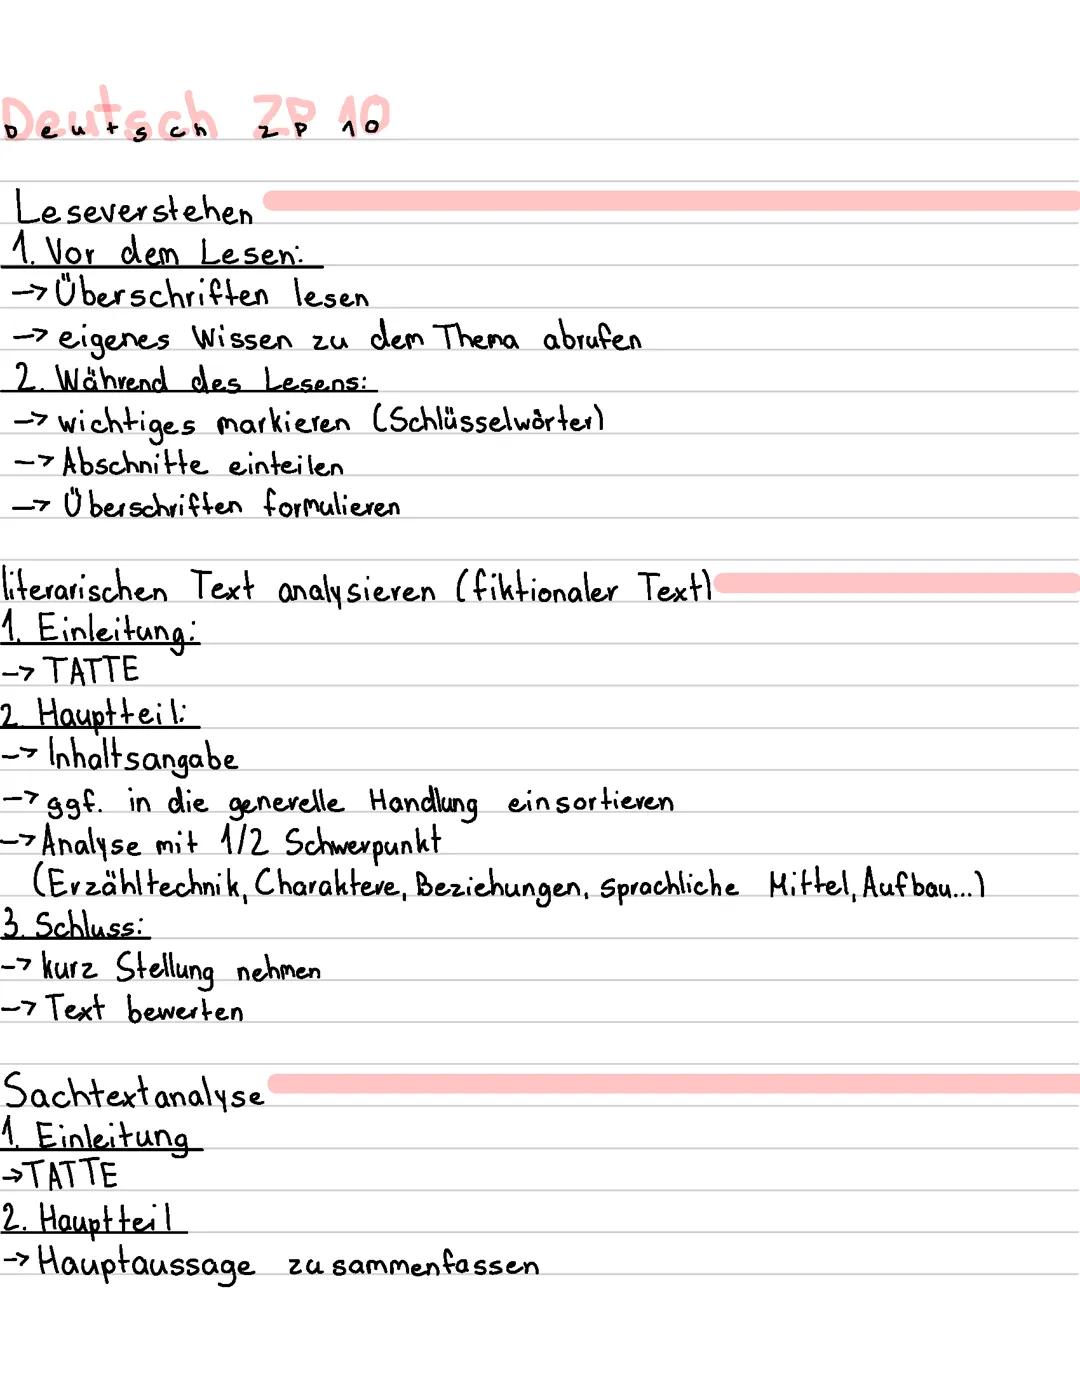 Deutsch ZP 10
Deutsch ZP 10
Leseverstehen
1. Vor dem Lesen:
-> Überschriften lesen
-> eigenes Wissen zu dem Thema abrufen
2. Während des Lesens:
-> wichtiges markieren (Schlüsselwörter)
-> Abschnitte einteilen
-> Überschriften formulieren
literarischen Text analysieren (fiktionaler Text)
1. Einleitung:
-> TATTE
2. Hauptteil:
-> Inhaltsangabe
-> ggf. in die generelle Handlung einsortieren
-> Analyse mit 1/2 Schwerpunkt
(Erzähltechnik, Charaktere, Beziehungen, sprachliche Mittel, Aufbau...)
3. Schluss:
-> kurz Stellung nehmen
-> Text bewerten
Sachtextanalyse
1. Einleitung
-> TATTE
2. Hauptteil
-> Hauptaussage zusammenfassen